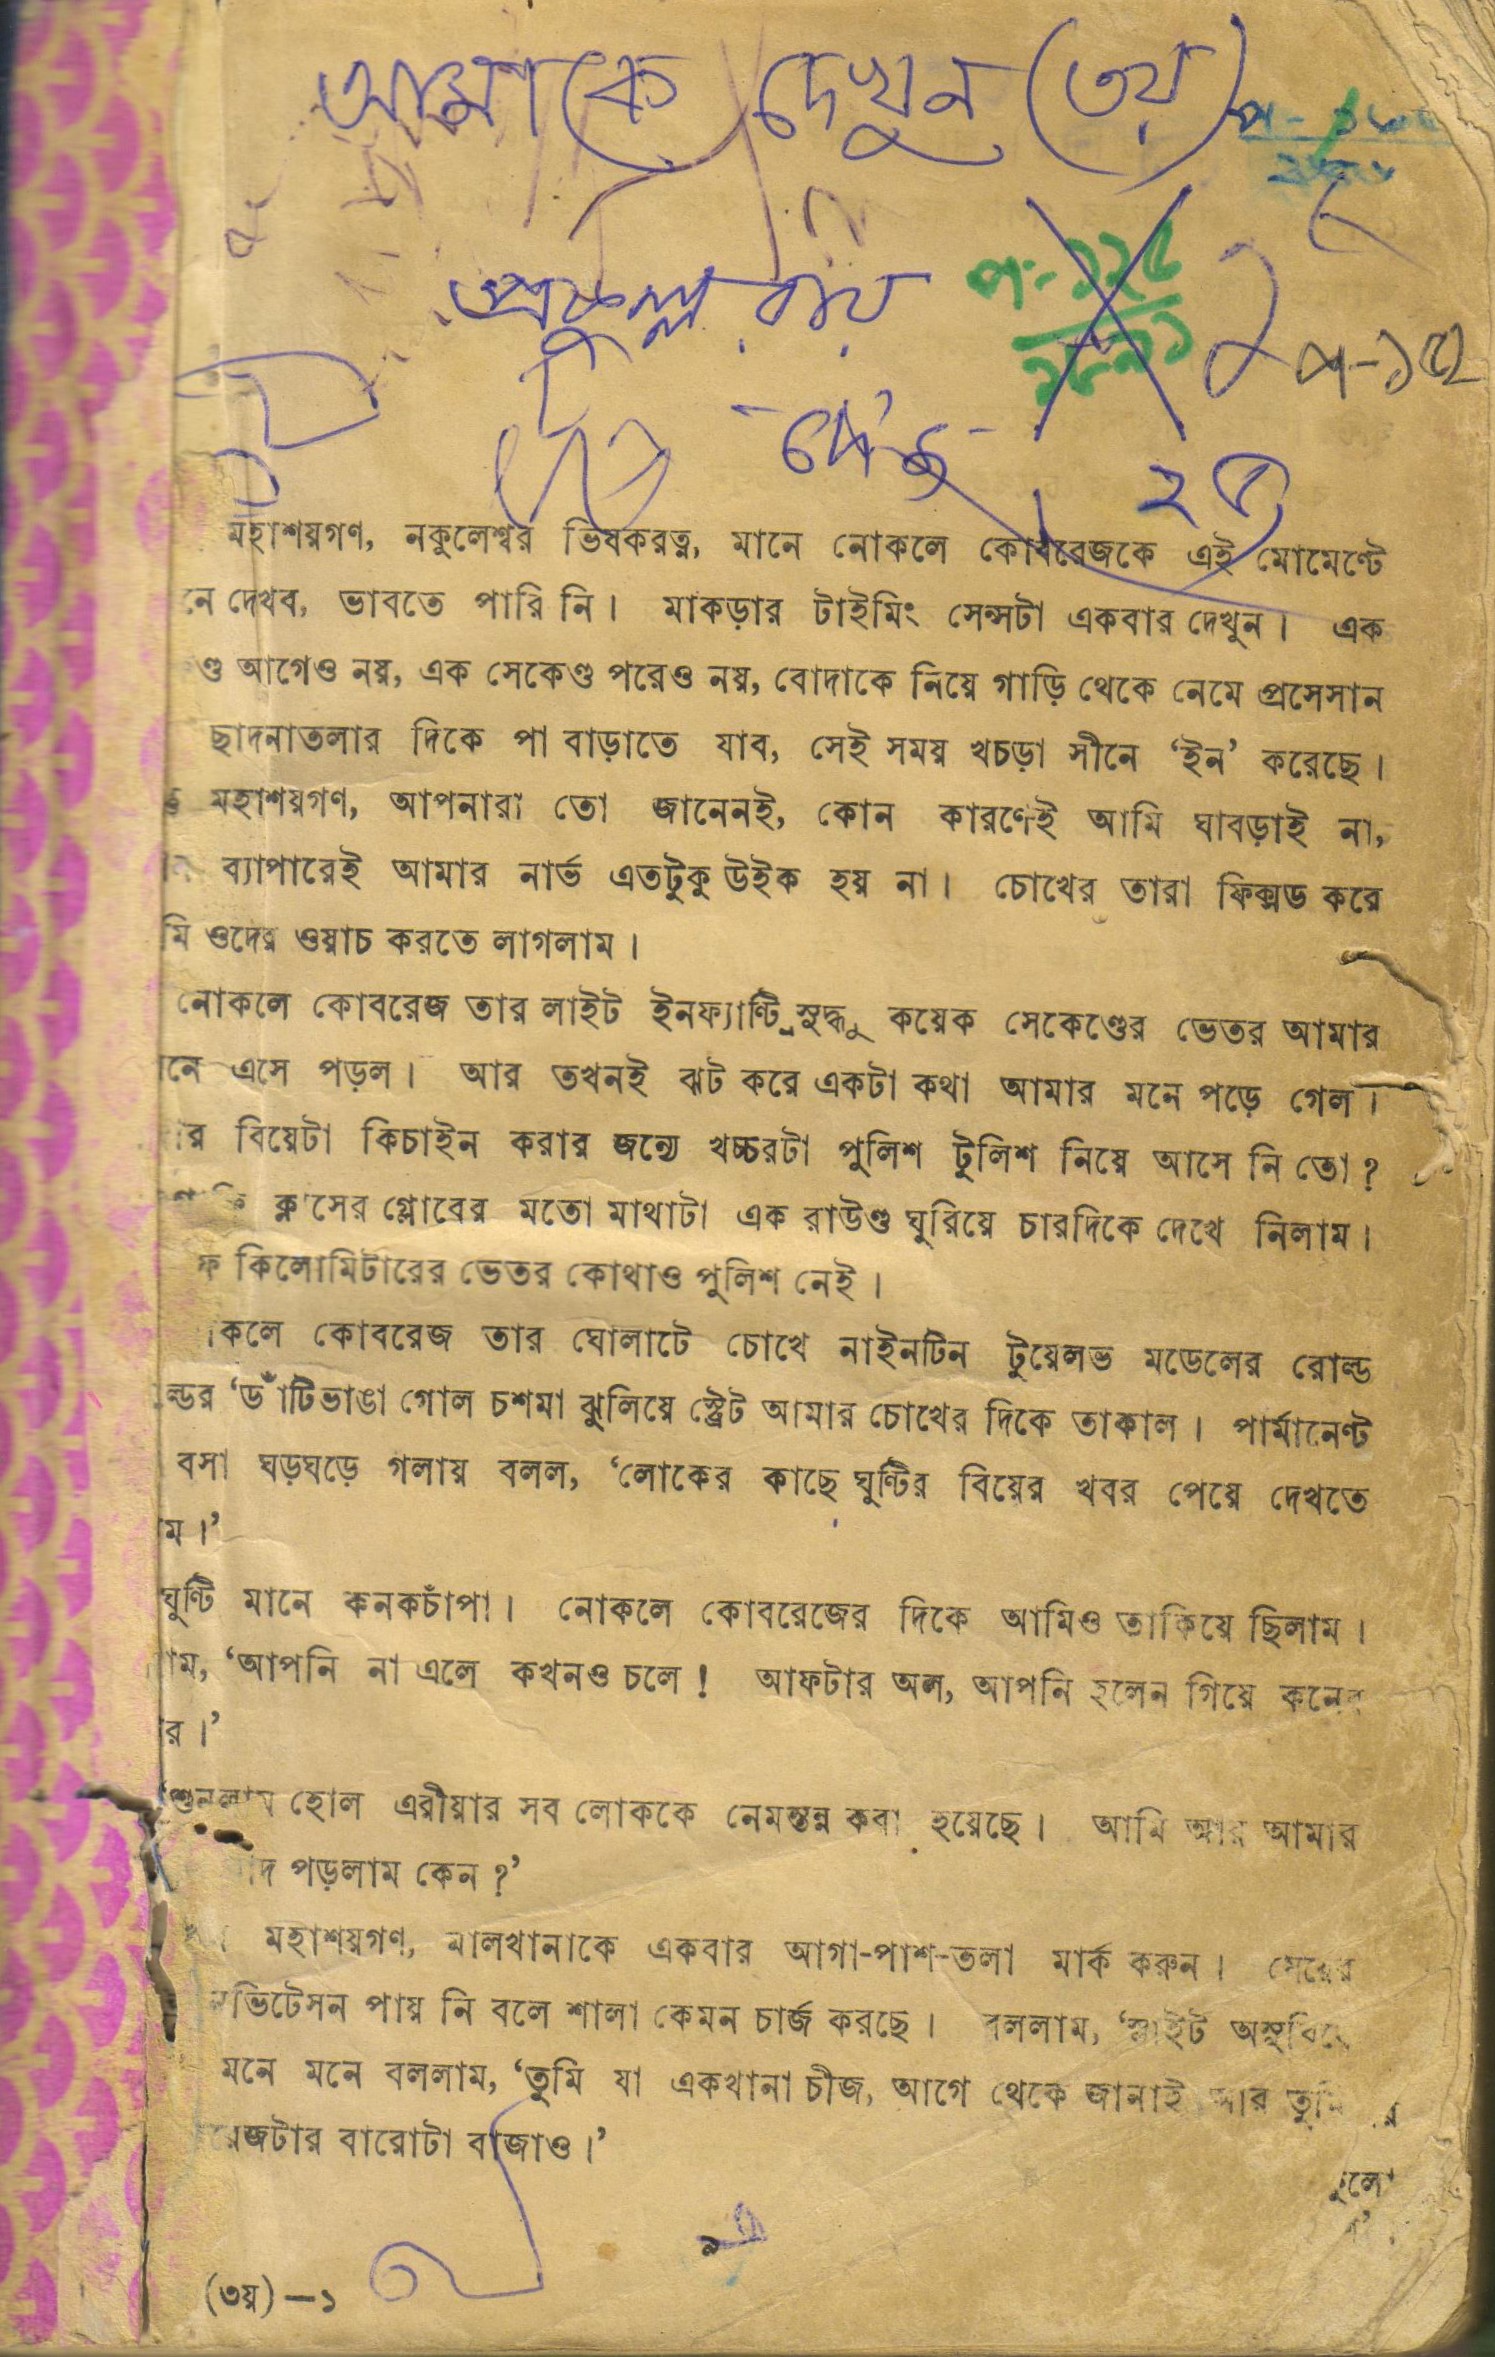 আমাকে দেখুন (৩য়)
প্রফুল্ল রায়
প-১১৫
প-১৫২
২৫
মহাশয়গণ, নকুলেশ্বর ভিষকরত্ন, মানে নোকলে কোবরেজকে এই মোমেণ্টে
নে দেখব, ভাবতে পারি নি। মাকড়ার টাইমিং সেন্সটা একবার দেখুন। এক
ণ্ড আগেও নয়, এক সেকেণ্ড পরেও নয়, বোদাকে নিয়ে গাড়ি থেকে নেমে প্রসেসান
ছাদনাতলার দিকে পা বাড়াতে যাব, সেই সময় খচড়া সীনে ‘ইন’ করেছে।
মহাশয়গণ, আপনারা তো জানেনই, কোন কারণেই আমি ঘাবড়াই না,
ব্যাপারেই আমার নার্ভ এতটুকু উইক হয় না। চোখের তারা ফিক্সড করে
মি ওদের ওয়াচ করতে লাগলাম।
নোকলে কোবরেজ তার লাইট ইনফ্যাণ্ট্রি সুদ্ধু কয়েক সেকেণ্ডের ভেতর আমার
নে এসে পড়ল। আর তখনই ঝট করে একটা কথা আমার মনে পড়ে গেল।
র বিয়েটা কিচাইন করার জন্যে খচ্চরটা পুলিশ টুলিশ নিয়ে আসে নি তো?
ক্লাসের গ্লোবের মতো মাথাটা এক রাউণ্ড ঘুরিয়ে চারদিকে দেখে নিলাম।
ফ কিলোমিটারের ভেতর কোথাও পুলিশ নেই।
কলে কোবরেজ তার ঘোলাটে চোখে নাইনটিন টুয়েলভ মডেলের রোল্ড
ল্ডর ‘ডাঁটিভাঙা গোল চশমা ঝুলিয়ে স্ট্রেট আমার চোখের দিকে তাকাল। পার্মানেণ্ট
বসা ঘড়ঘড়ে গলায় বলল, ‘লোকের কাছে ঘুণ্টির বিয়ের খবর পেয়ে দেখতে
ম।’
ঘুণ্টি মানে কনকচাঁপা। নোকলে কোবরেজের দিকে আমিও তাকিয়ে ছিলাম।
াম, ‘আপনি না এলে কখনও চলে! আফটার অল, আপনি হলেন গিয়ে কনের
র।’
‘শুনলাম হোল এরীয়ার সব লোককে নেমন্তন্ন করা হয়েছে। আমি আর আমার
াদ পড়লাম কেন?’
মহাশয়গণ, মালখানাকে একবার আগা-পাশ-তলা মার্ক করুন। মেয়ের
ভিটেসন পায় নি বলে শালা কেমন চার্জ করছে। বললাম, ‘স্লাইট অসুবিধে
মনে মনে বললাম, ‘তুমি যা একখানা চীজ, আগে থেকে জানাই আর তুমি
রেজটার বারোটা বাজাও।’
(৩য়)—১